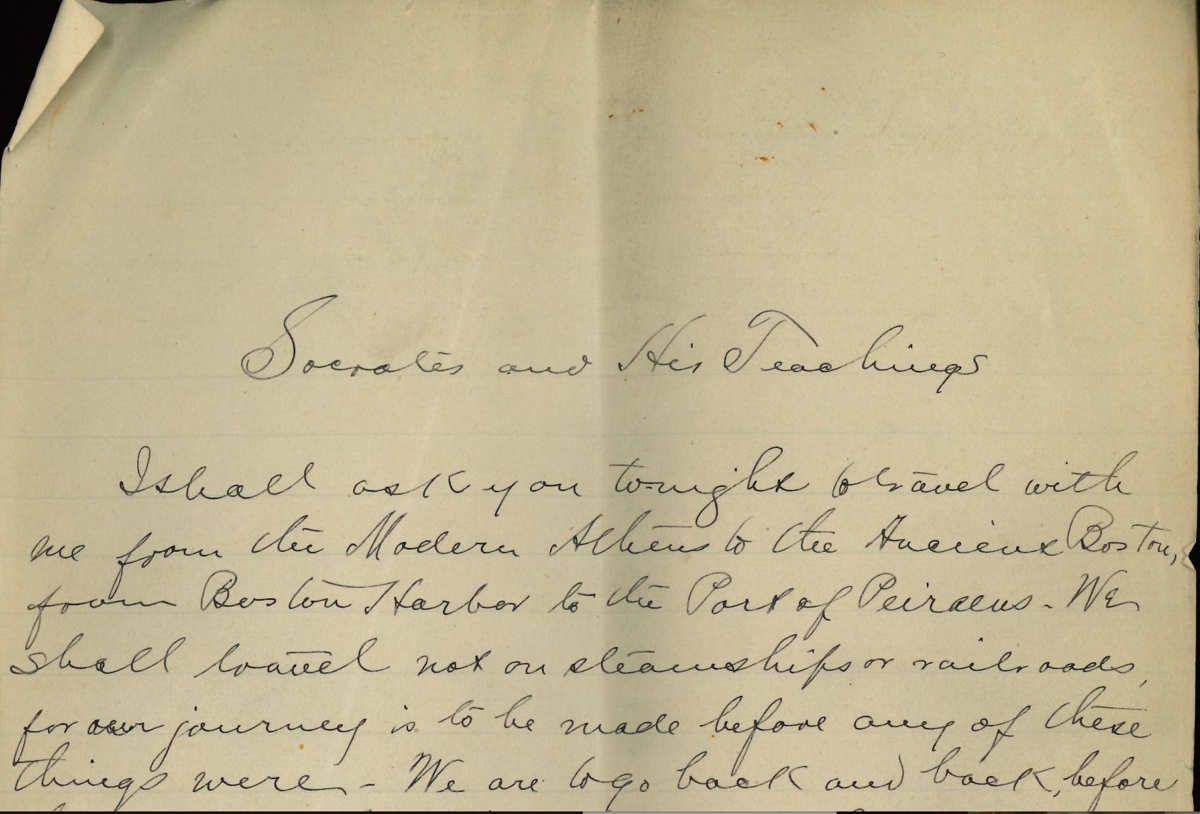 Socrates and His Teachings
I shall ask you to-night to travel with
me from the Modern Athens to the Ancient Boston,
from Boston Harbor to the Port of Peiraeus - We
shall travel not on steamships or railroads,
for our journey is to be made before any of these
things were - We are to go back and back, before